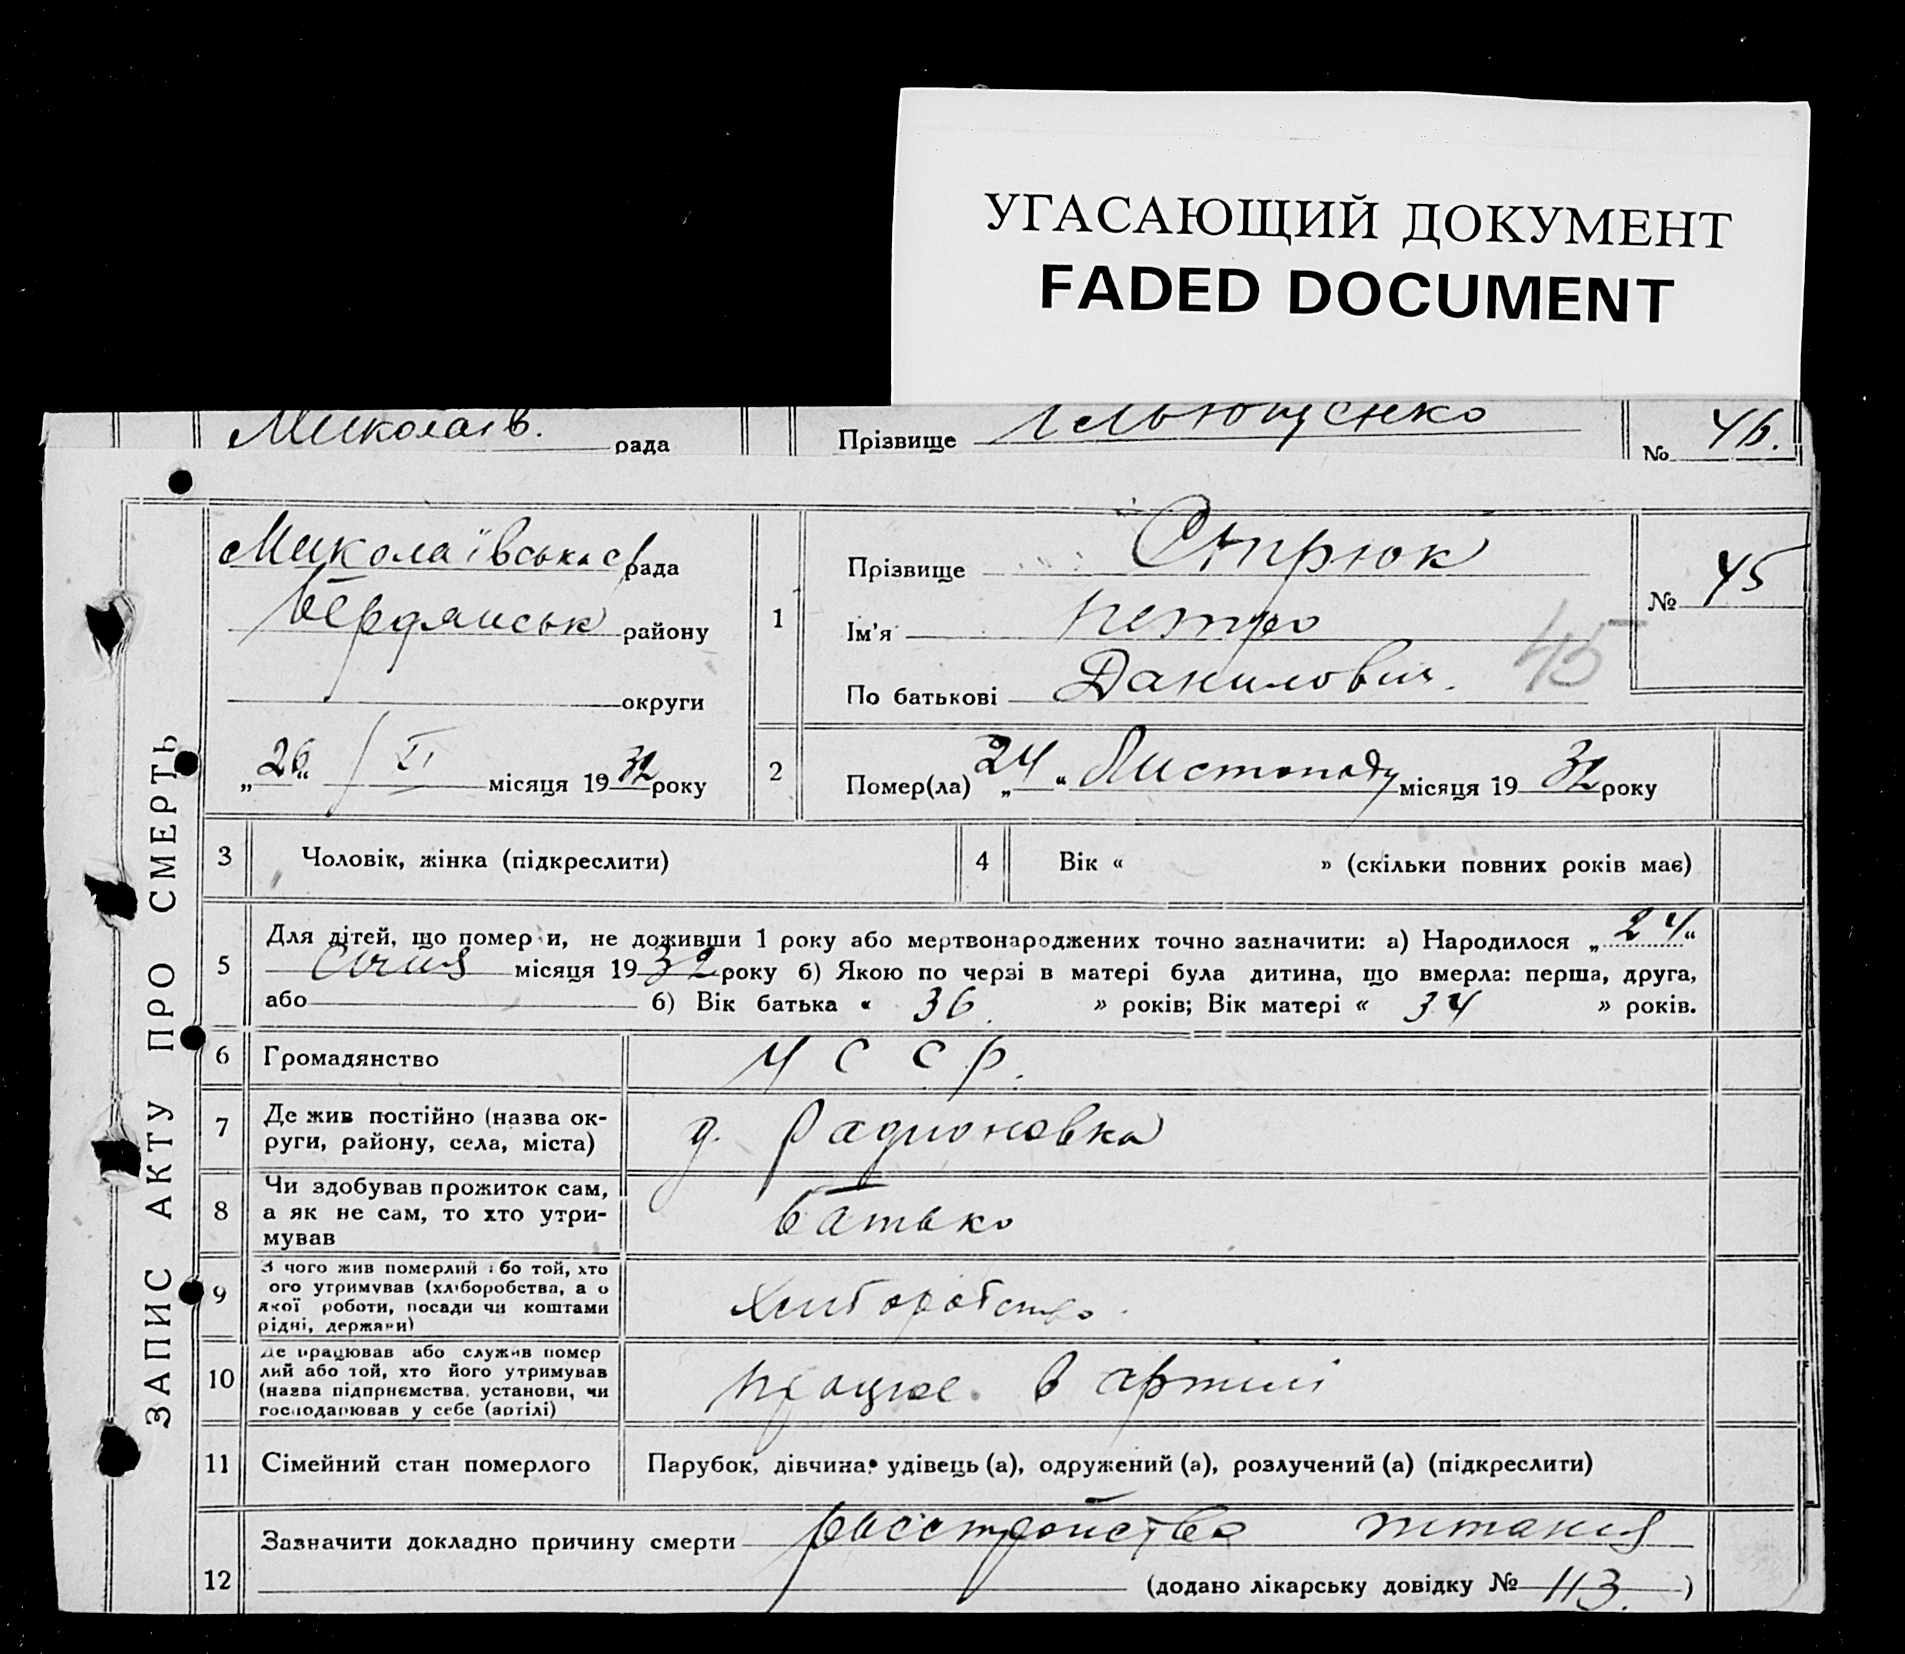 УГАСАЮЩИЙ ДОКУМЕНТ
FADED DOCUMENT
Миколаїв. рада
Прізвище
№ 46.
ЗАПИС АКТУ ПРО СМЕРТЬ
Миколаївська с/рада
Бердянськ району
округи
„26“ / XI місяця 1932 року
1
Прізвище Стрюк
Ім'я Петро
По батькові Данилович.
45
№ 45
2
Помер(ла) „24“ Листопаду місяця 1932 року
3 Чоловік, жінка (підкреслити)
4 Вік « » (скільки повних років має)
5 Для дітей, що помер и, не доживши 1 року або мертвонароджених точно зазначити: а) Народилося „24“
Січня місяця 1932 року б) Якою по черзі в матері була дитина, що вмерла: перша, друга,
або б) Вік батька « 36. » років; Вік матері « 34 » років.
6 Громадянство УССР.
7 Де жив постійно (назва ок-
руги, району, села, міста)
д. Радионовка
8 Чи здобував прожиток сам,
а як не сам, то хто утри-
мував
батько
9 З чого жив померлий або той, хто
ого утримував (хліборобства, а о
якої роботи, посади чи коштами
рідні, держави)
Хліборобство.
10 Де працював або служив помер
лий або той, хто його утримував
(назва підприємства, установи, чи
господарював у себе (артілі)
працює в артилі
11 Сімейний стан померлого
Парубок, дівчина, удівець (а), одружений (а), розлучений (а) (підкреслити)
12 Зазначити докладно причину смерти расстройство питания
(додано лікарську довідку № 113.)